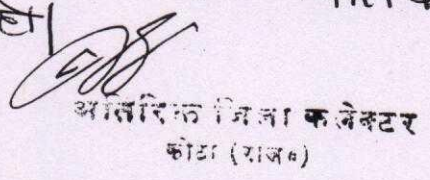 हो।
अतिरिक्त जिला कलेक्टर
कोटा (राज०)